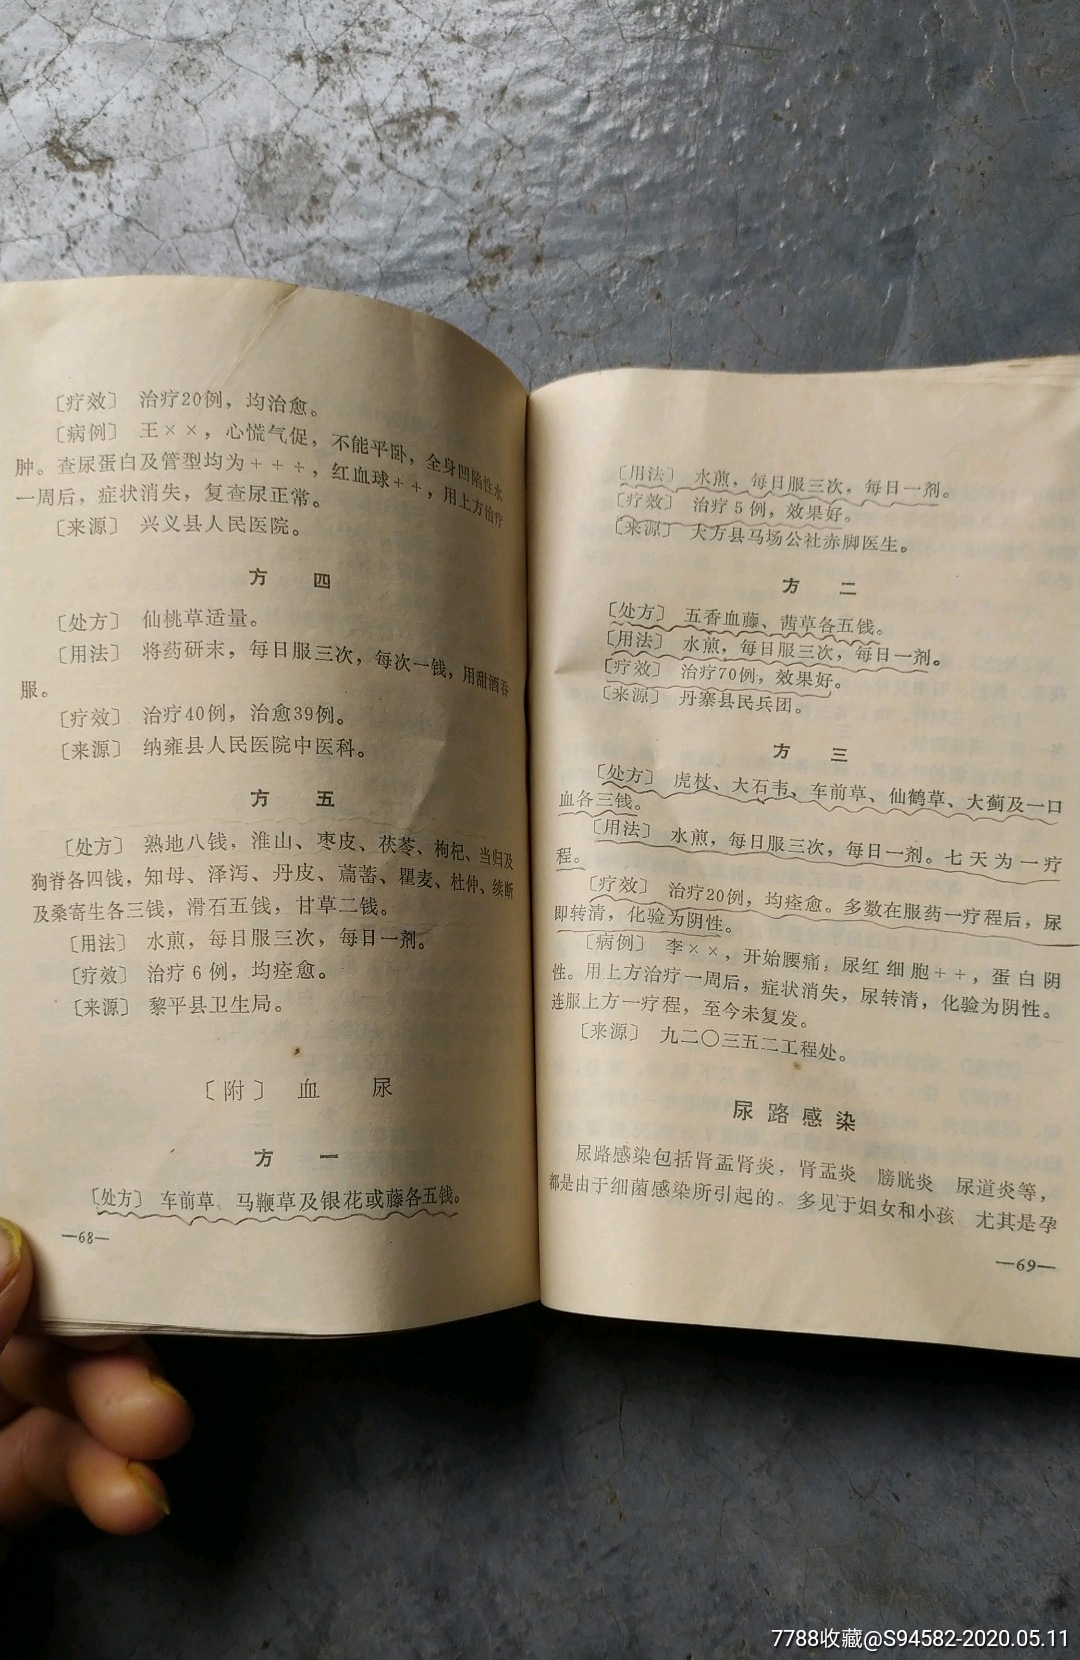 〔疗效〕 治疗20例，均治愈。
〔病例〕 王××，心慌气促，不能平卧，全身凹陷性水
肿。查尿蛋白及管型均为+++，红血球++，用上方治疗
一周后，症状消失，复查尿正常。
〔来源〕 兴义县人民医院。
方 四
〔处方〕 仙桃草适量。
〔用法〕 将药研末，每日服三次，每次一钱，用甜酒吞
服。
〔疗效〕 治疗40例，治愈39例。
〔来源〕 纳雍县人民医院中医科。
方 五
〔处方〕 熟地八钱，淮山、枣皮、茯苓、枸杞、当归及
狗脊各四钱，知母、泽泻、丹皮、萹蓄、瞿麦、杜仲、续断
及桑寄生各三钱，滑石五钱，甘草二钱。
〔用法〕 水煎，每日服三次，每日一剂。
〔疗效〕 治疗6例，均痊愈。
〔来源〕 黎平县卫生局。
〔附〕 血 尿
方 一
〔处方〕 车前草、马鞭草及银花或藤各五钱。
—68—
〔用法〕 水煎，每日服三次，每日一剂。
〔疗效〕 治疗5例，效果好。
〔来源〕 大方县马场公社赤脚医生。
方 二
〔处方〕 五香血藤、茜草各五钱。
〔用法〕 水煎，每日服三次，每日一剂。
〔疗效〕 治疗70例，效果好。
〔来源〕 丹寨县民兵团。
方 三
〔处方〕 虎杖、大石韦、车前草、仙鹤草、大蓟及一口
血各三钱。
〔用法〕 水煎，每日服三次，每日一剂。七天为一疗
程。
〔疗效〕 治疗20例，均痊愈。多数在服药一疗程后，尿
即转清，化验为阴性。
〔病例〕 李××，开始腰痛，尿红细胞++，蛋白阴
性。用上方治疗一周后，症状消失，尿转清，化验为阴性。
连服上方一疗程，至今未复发。
〔来源〕 九二〇三五二工程处。
尿路感染
尿路感染包括肾盂肾炎、肾盂炎 膀胱炎 尿道炎等，
都是由于细菌感染所引起的。多见于妇女和小孩 尤其是孕
—69—
7788收藏@S94582-2020.05.11